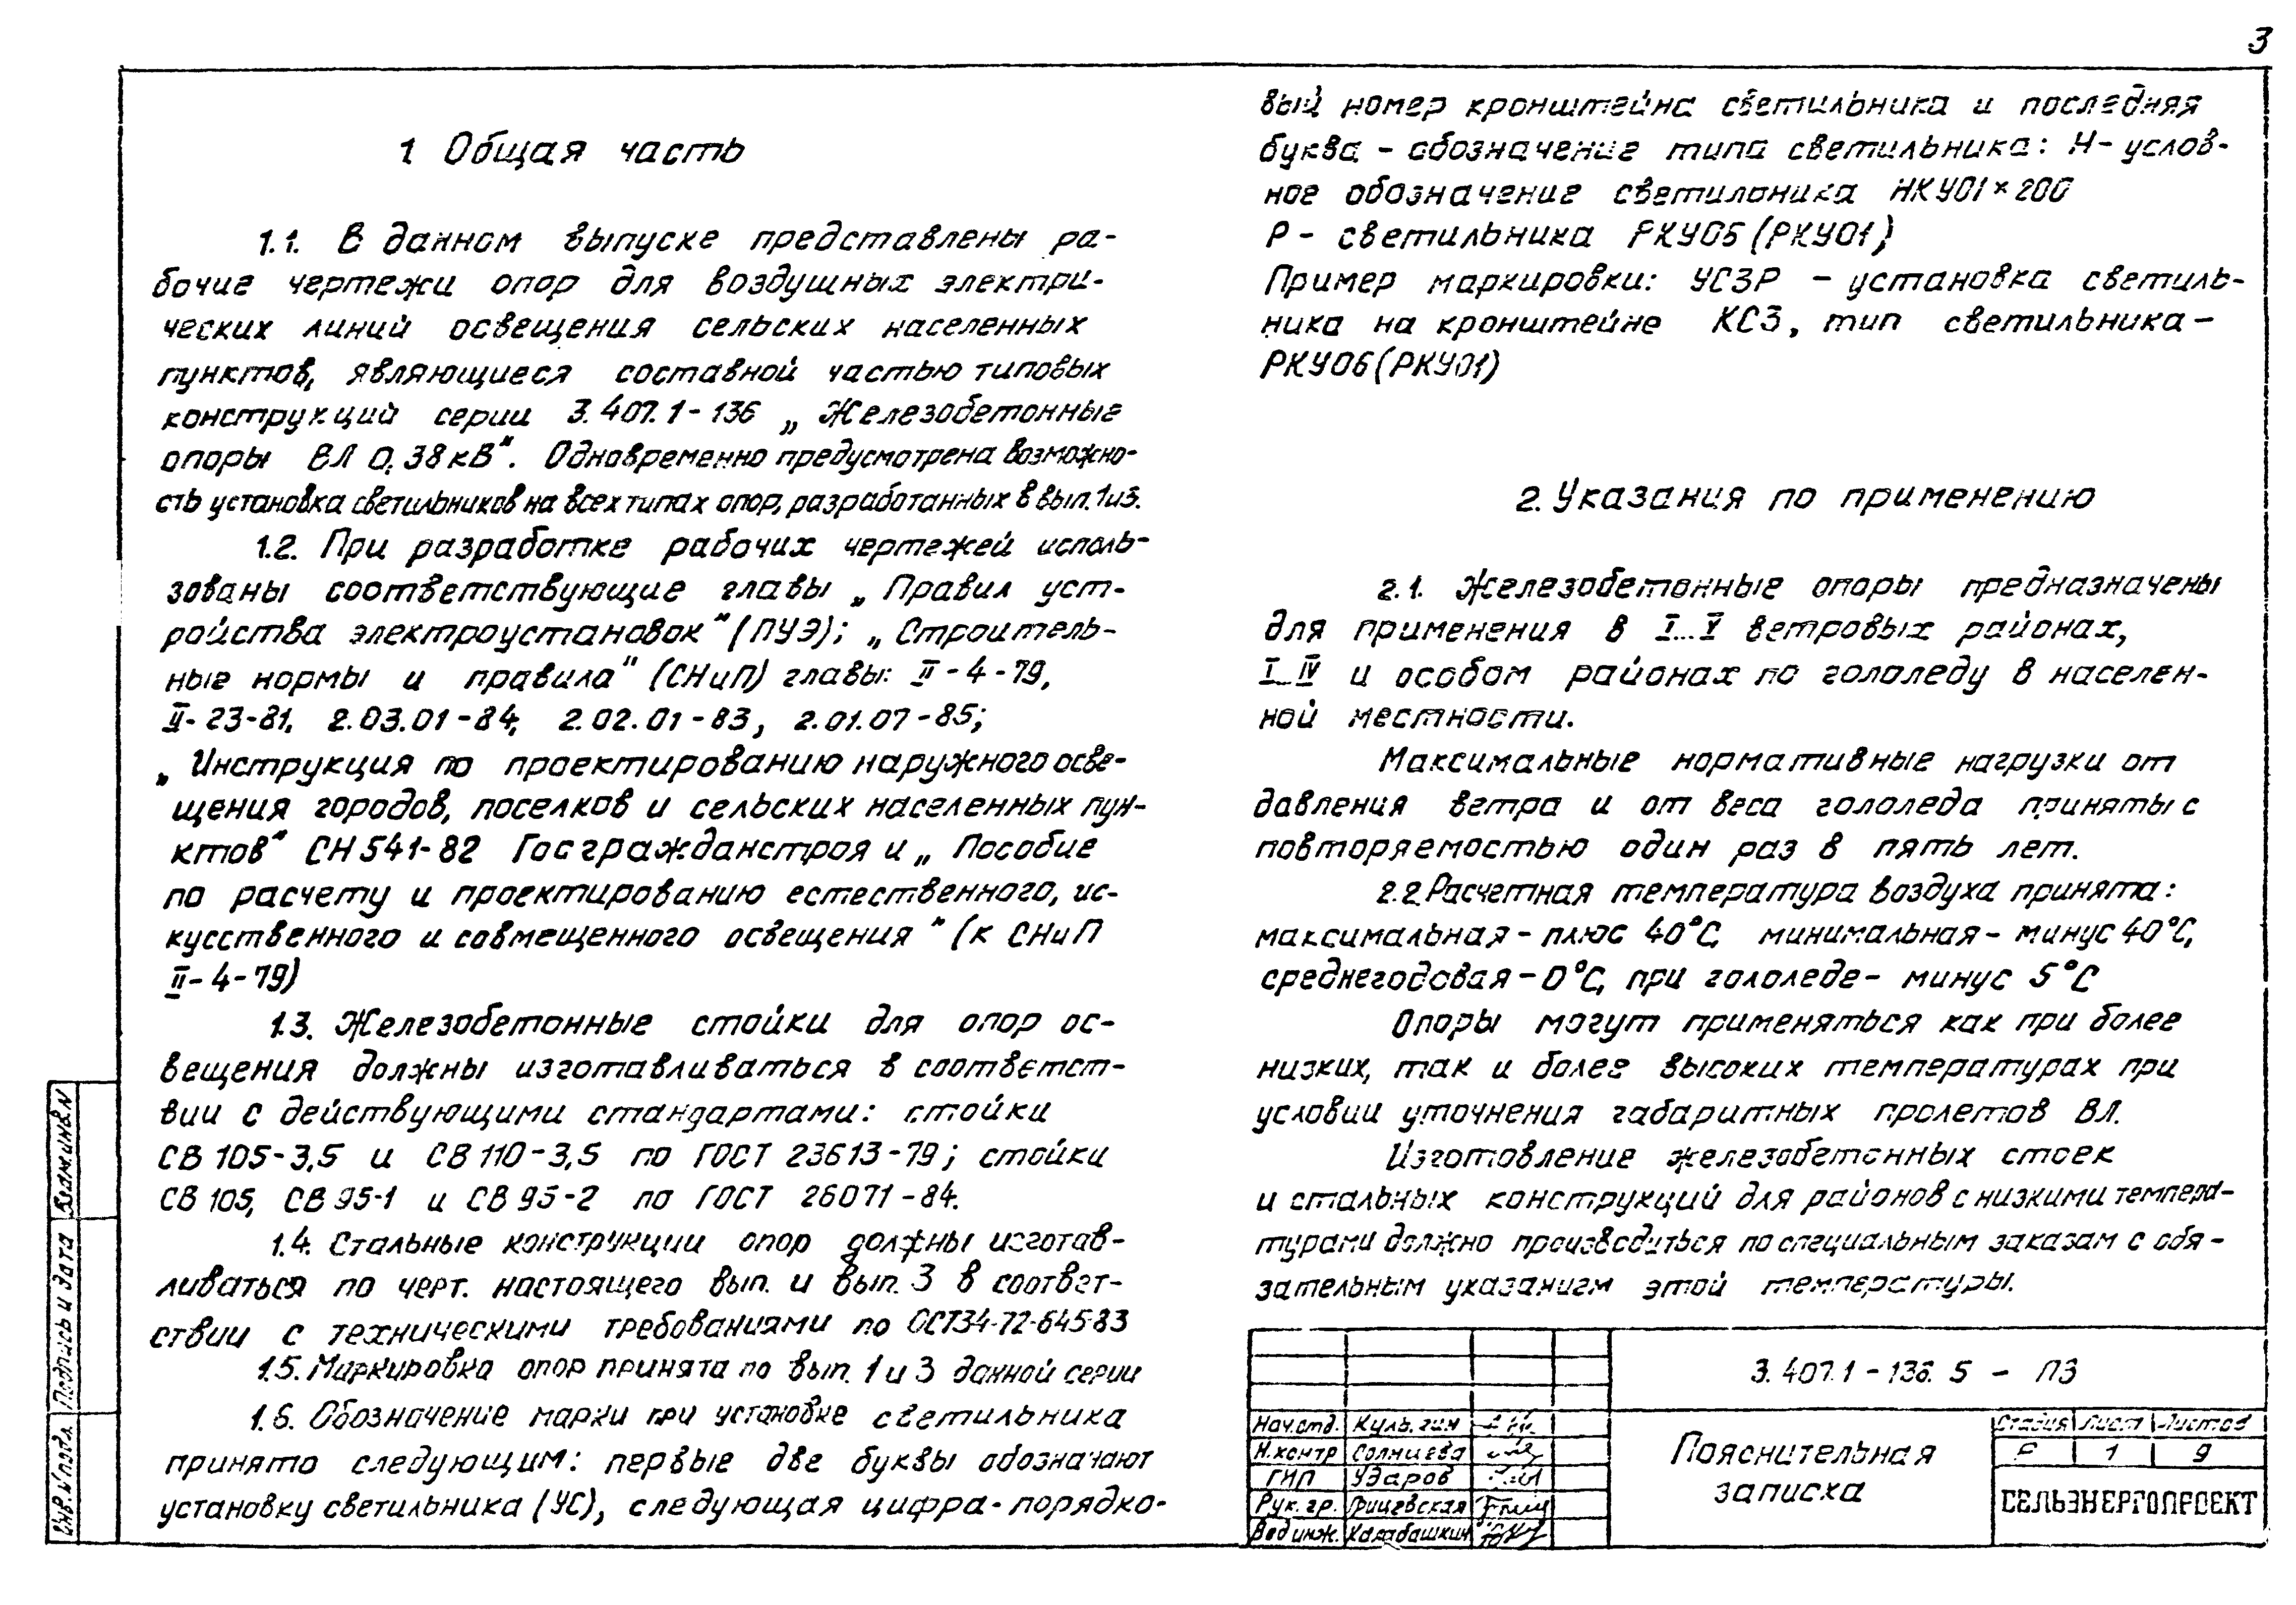 3
1 Общая часть
1.1. В данном выпуске представлены ра-
бочие чертежи опор для воздушных электри-
ческих линий освещения сельских населенных
пунктов, являющиеся составной частью типовых
конструкций серии 3.407.1-136 „Железобетонные
опоры ВЛ 0,38кВ". Одновременно предусмотрена возможно-
сть установка светильников на всех типах опор, разработанных в вып.1и3.
1.2. При разработке рабочих чертежей исполь-
зованы соответствующие главы „Правил уст-
ройства электроустановок" (ПУЭ); „Строитель-
ные нормы и правила" (СНиП) главы: II-4-79,
II-23-81, 2.03.01-84, 2.02.01-83, 2.01.07-85;
„Инструкция по проектированию наружного осве-
щения городов, поселков и сельских населенных пун-
ктов" СН 541-82 Госгражданстроя и „Пособие
по расчету и проектированию естественного, ис-
кусственного и совмещенного освещения" (к СНиП
II-4-79)
1.3. Железобетонные стойки для опор ос-
вещения должны изготавливаться в соответст-
вии с действующими стандартами: стойки
СВ 105-3,5 и СВ 110-3,5 по ГОСТ 23613-79; стойки
СВ 105, СВ 95-1 и СВ 95-2 по ГОСТ 26071-84.
1.4. Стальные конструкции опор должны изготав-
ливаться по черт. настоящего вып. и вып. 3 в соответ-
ствии с техническими требованиями по ОСТ34-72-645-83
1.5. Маркировка опор принята по вып. 1 и 3 данной серии
1.6. Обозначение марки при установке светильника
принято следующим: первые две буквы обозначают
установку светильника (УС), следующая цифра - порядко-
вый номер кронштейна светильника и последняя
буква - обозначение типа светильника: Н - услов-
ное обозначение светилоника НКУ01×200
Р - светильника РКУ06 (РКУ01)
Пример маркировки: УС3Р - установка светиль-
ника на кронштейне КС3, тип светильника -
РКУ06 (РКУ01)
2. Указания по применению
2.1. Железобетонные опоры предназначены
для применения в I...V ветровых районах,
I...IV и особом районах по гололеду в населен-
ной местности.
Максимальные нормативные нагрузки от
давления ветра и от веса гололеда приняты с
повторяемостью один раз в пять лет.
2.2. Расчетная температура воздуха принята:
максимальная - плюс 40°С, минимальная - минус 40°С,
среднегодовая - 0°С, при гололеде - минус 5°С
Опоры могут применяться как при более
низких, так и более высоких температурах при
условии уточнения габаритных пролетов ВЛ.
Изготовление железобетонных стоек
и стальных конструкций для районов с низкими темпера-
турами должно производиться по специальным заказам с обя-
зательным указанием этой температуры.
3.407.1-136.5 - ПЗ
Нач.отд.
Н.контр Солнцева
ГИП Ударов
Рук.гр.
Вед инж. Калабашкин
Пояснительная
записка
Стадия Лист Листов
Р 1 9
СЕЛЬЭНЕРГОПРОЕКТ
Взам.инв.N
Подпись и дата
Инв.N подл.